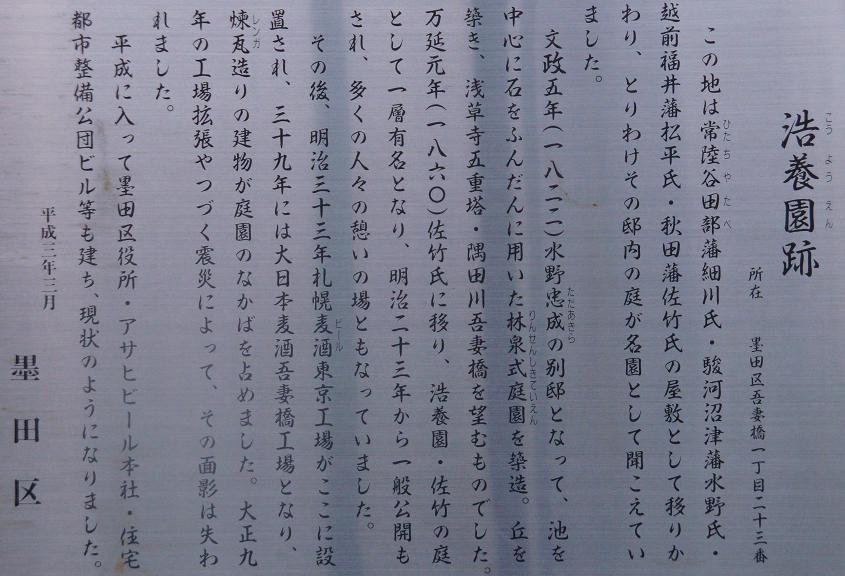 浩養園跡
こうようえん
所在 墨田区吾妻橋一丁目二十三番
この地は常陸谷田部藩細川氏・駿河沼津藩水野氏・
ひたちやたべ
越前福井藩松平氏・秋田藩佐竹氏の屋敷として移りか
わり、とりわけその邸内の庭が名園として聞こえてい
ました。
文政五年(一八二二)水野忠成の別邸となって、池を
ただあきら
中心に石をふんだんに用いた林泉式庭園を築造。丘を
りんせんしきていえん
築き、浅草寺五重塔・隅田川吾妻橋を望むものでした。
万延元年(一八六〇)佐竹氏に移り、浩養園・佐竹の庭
として一層有名となり、明治二十三年から一般公開も
され、多くの人々の憩いの場ともなっていました。
その後、明治三十三年札幌麦酒東京工場がここに設
ビール
置され、三十九年には大日本麦酒吾妻橋工場となり、
煉瓦造りの建物が庭園のなかばを占めました。大正九
レンガ
年の工場拡張やつづく震災によって、その面影は失わ
れました。
平成に入って墨田区役所・アサヒビール本社・住宅
都市整備公団ビル等も建ち、現状のようになりました。
平成三年三月
墨田区